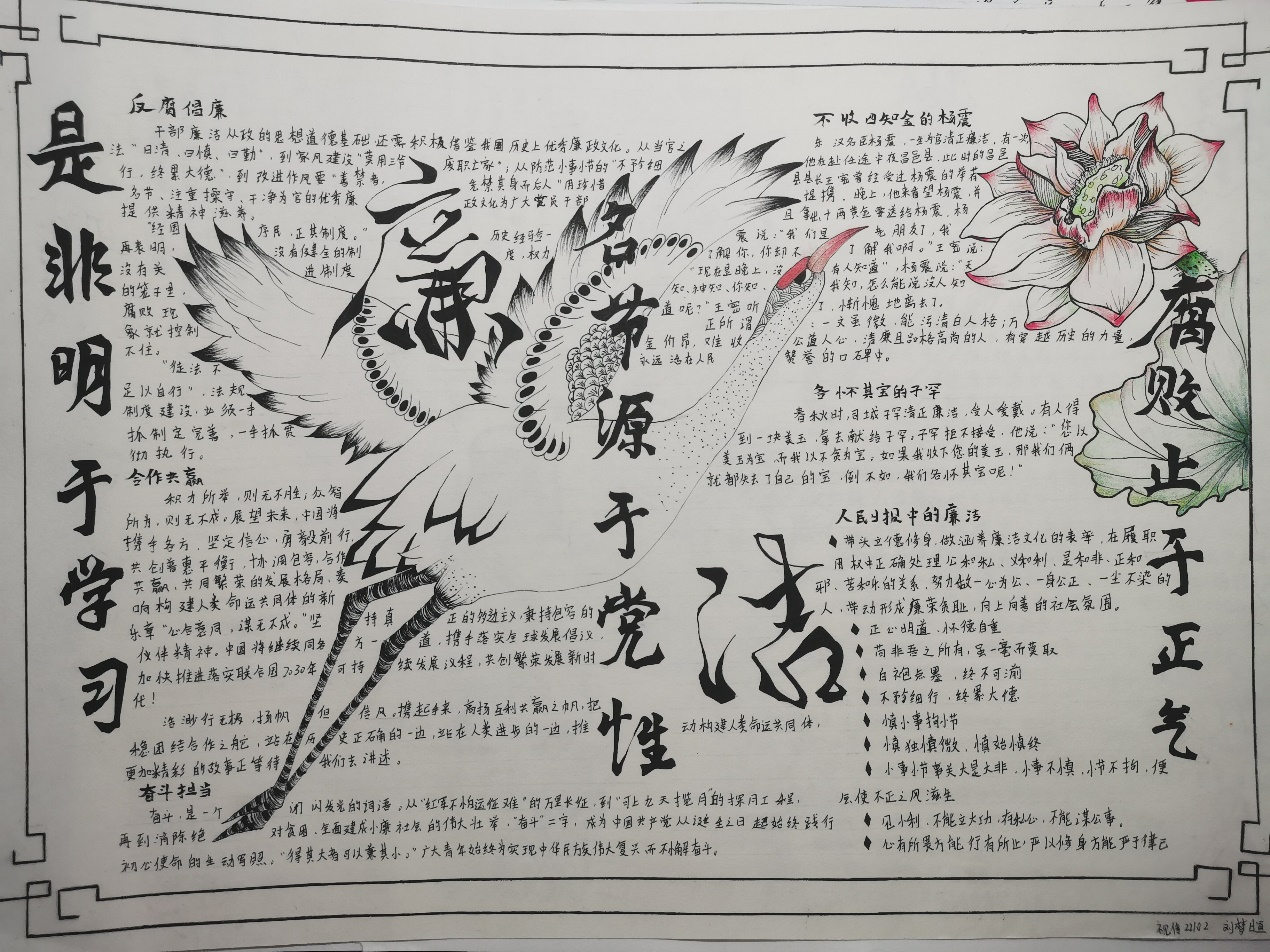 是非明于学习
反腐倡廉
干部廉洁从政的思想道德基础还需积极借鉴我国历史上优秀廉政文化。从当官之
法"日清、曰慎、曰勤",到家风建设"莫用三爷
废职亡家";从防范小事小节的"不矜细
行,终累大德",到改进作风要"善禁者,
先禁其身而后人"用珍惜
名节、注重操守、干净为官的优秀廉
政文化为广大党员干部
提供精神滋养。
"经国序民,正其制度。"
历史经验一
再表明,没有健全的制度,权力
没有关进制度
的笼子里,
腐败现
象就控制
不住。
"徒法不
足以自行",法规
制度建设,必须一手
抓制定完善,一手抓贯
彻执行。
合作共赢
积力所举,则无不胜;众智
所为,则无不成。展望未来,中国将
携手各方,坚定信心,勇毅前行,
共创普惠平衡、协调包容、合作
共赢、共同繁荣的发展格局,奏
响构建人类命运共同体的新
乐章"心合意同,谋无不成。"坚持真正的多边主义,秉持包容的
伙伴精神。中国将继续同各方一道,携手落实全球发展倡议,
加快推进落实联合国2030年可持续发展议程,共创繁荣发展新时
代!
浩渺行无极,扬帆但信风。携起手来,高扬互利共赢之帆,把
稳团结合作之舵,站在历史正确的一边,站在人类进步的一边,推动构建人类命运共同体,
更加精彩的故事正等待我们去讲述。
奋斗担当
奋斗,是一个闪闪发光的词语。从"红军不怕远征难"的万里长征,到"可上九天揽月"的探月工程,
再到消除绝对贫困、全面建成小康社会的伟大壮举,"奋斗"二字,成为中国共产党从诞生之日起始终践行
初心使命的生动写照。"得其大者可以兼其小。"广大青年始终为实现中华民族伟大复兴而不懈奋斗。
廉
名节源于党性
洁
不收四知金的杨震
东汉名臣杨震,一生为官清正廉洁,有一次
他在赴任途中夜宿昌邑县,此时的昌邑
县县长王密曾经受过杨震的举荐
提携。晚上,他来看望杨震,并
且拿出十两黄金要送给杨震,杨
震说:"我们是老朋友了,我
了解你,你却不了解我啊。"王密说:
"现在是晚上,没有人知道",杨震说:"天
知、神知、你知、我知,怎么能说没人知
道呢?"王密听了,惭愧地离去了。
正所谓:一丈虽微,能污清白人格;万
金价昂,难收公道人心,清廉且品格高尚的人,有穿越历史的力量,
永远活在人民赞誉的口碑中。
各怀其宝的子罕
春秋时,司城子罕清正廉洁,受人爱戴。有人得
到一块美玉,拿去献给子罕,子罕拒不接受,他说:"您以
美玉为宝,而我以不贪为宝。如果我收下您的美玉,那我们俩
就都失去了自己的宝,倒不如,我们各怀其宝呢!"
人民日报中的廉洁
♦带头立德修身,做涵养廉洁文化的表率,在履职
用权中正确处理公和私、义和利、是和非、正和
邪、苦和乐的关系,努力做一心为公、一身公正、一尘不染的
人,带动形成廉荣贪耻,向上向善的社会氛围。
♦正心明道、怀德自重
♦苟非吾之所有,虽一毫而莫取
♦白袍点墨,终不可湔
♦不矜细行,终累大德
♦慎小事拘小节
♦慎独慎微、慎始慎终
♦小事小节事关大是大非,小事不慎,小节不拘,便
会使不正之风滋生
♦见小利,不能立大功,存私心,不能谋公事。
♦心有所畏方能行有所止,严以修身方能严于律己
腐败止于正气
视传22102 刘梦